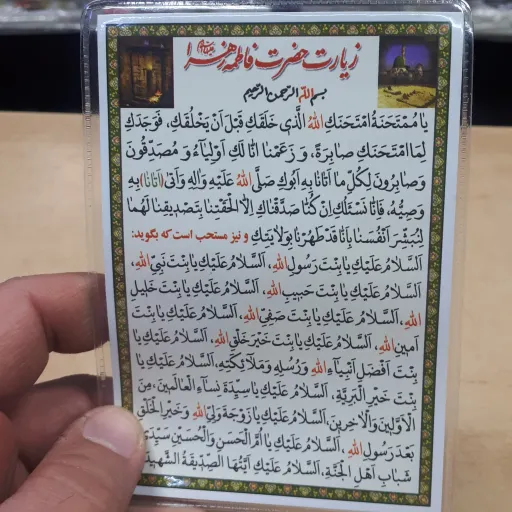 زیارت حضرت فاطمه زهرا
بسم الله الرحمن الرحیم
یا مُمْتَحَنَةُ امْتَحَنَكِ اللهُ الَّذی خَلَقَكِ قَبْلَ اَنْ یَخْلُقَكِ، فَوَجَدَكِ
لِمَا امْتَحَنَكِ صابِرَةً، وَ زَعَمْنا اَنَّا لَكِ اَوْلِیاءُ وَ مُصَدِّقُونَ
وَ صابِرُونَ لِكُلِّ ما اَتانا بِهِ اَبُوكِ صَلَّی اللهُ عَلَیْهِ وَ الِهِ وَ اَتی (اَتانا) بِهِ
وَصِیُّهُ، فَاِنَّا نَسْئَلُكِ اِنْ كُنَّا صَدَّقْناكِ اِلاَّ اَلْحَقْتِنا بِتَصْدیقِنا لَهُما
لِنُبَشِّرَ اَنْفُسَنا بِاَنَّا قَدْ طَهُرْنا بِوِلایَتِكِ و نیز مستحب است که بگوید:
اَلسَّلامُ عَلَیْكِ یا بِنْتَ رَسُولِ اللهِ، اَلسَّلامُ عَلَیْكِ یا بِنْتَ نَبِیِّ اللهِ،
اَلسَّلامُ عَلَیْكِ یا بِنْتَ حَبیبِ اللهِ، اَلسَّلامُ عَلَیْكِ یا بِنْتَ خَلیلِ
اللهِ، اَلسَّلامُ عَلَیْكِ یا بِنْتَ صَفِیِّ اللهِ، اَلسَّلامُ عَلَیْكِ یا بِنْتَ
اَمینِ اللهِ، اَلسَّلامُ عَلَیْكِ یا بِنْتَ خَیْرِ خَلْقِ اللهِ، اَلسَّلامُ عَلَیْكِ یا
بِنْتَ اَفْضَلِ اَنْبِیاءِ اللهِ وَ رُسُلِهِ وَ مَلائِكَتِهِ، اَلسَّلامُ عَلَیْكِ یا
بِنْتَ خَیْرِ الْبَرِیَّةِ، اَلسَّلامُ عَلَیْكِ یا سَیِّدَةَ نِساءِ الْعالَمینَ، مِنَ
الْاَوَّلینَ وَ الْاخِرینَ، اَلسَّلامُ عَلَیْكِ یا زَوْجَةَ وَلِیِّ اللهِ وَ خَیْرِ الْخَلْقِ
بَعْدَ رَسُولِ اللهِ، اَلسَّلامُ عَلَیْكِ یا اُمَّ الْحَسَنِ وَ الْحُسَیْنِ سَیِّدَیْ
شَبابِ اَهْلِ الْجَنَّةِ، اَلسَّلامُ عَلَیْكِ اَیَّتُهَا الصِّدّیقَةُ الشَّهیدَةُ